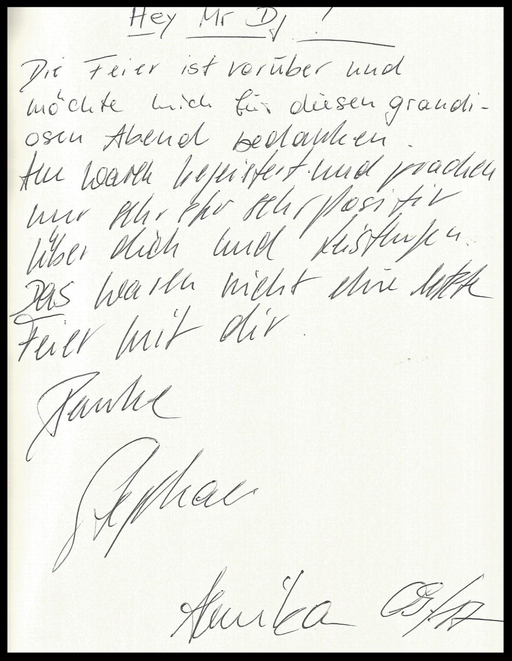 Hey Mr Dj !
Die Feier ist vorüber und
möchte mich für diesen grandi-
osen Abend bedanken.
Alle waren begeistert und sprachen
nur sehr sehr sehr positiv
über dich und
Das waren nicht eine letzte
Feier mit dir.
Danke
Stephan
Annika 09/17